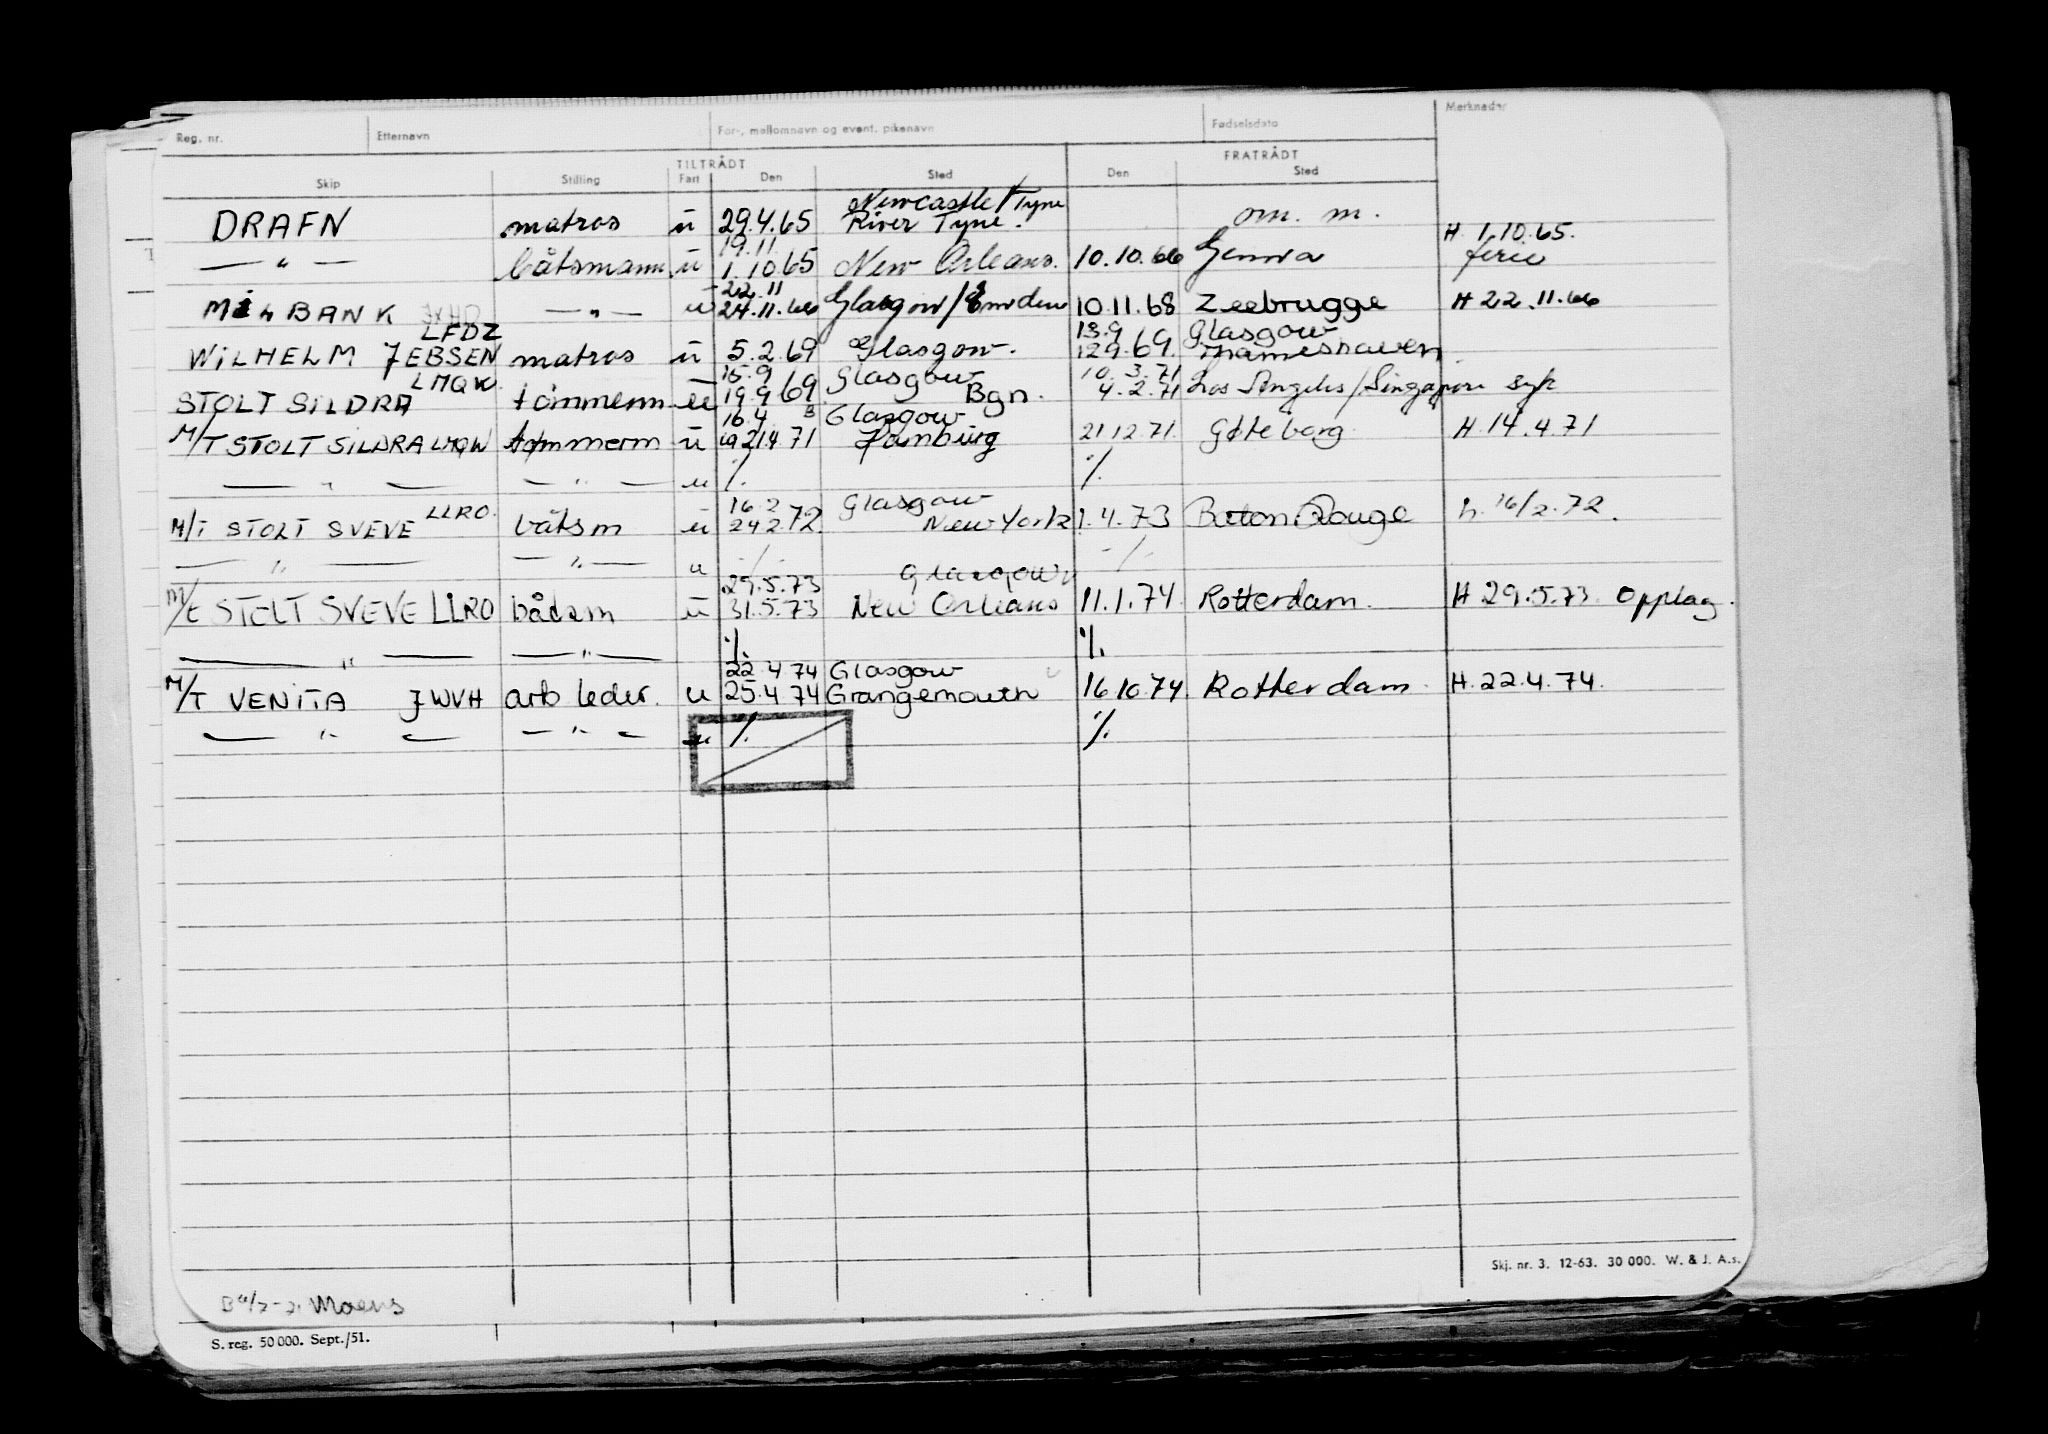 Reg. nr. Etternavn For-, mellomnavn og event. pikenavn Fødselsdato Merknader
TILTRÅDT FRATRÅDT
Skip Stilling Fart Den Sted Den Sted
Newcastle/Tyne
DRAFN matros u 29.4.65 River Tyne. om. m.
19.11 H. 1.10.65.
— " — båtsmann u 1.10.65 New Orleans. 10.10.66 Genova ferie
22.11
BANK — " — u 24.11.66 Glasgow/Emden 10.11.68 Zeebrugge H 22.11.66
LFDZ 13.9 Glasgow
WILHELM JEBSEN matros u 5.2.69 Glasgow. 12.9.69. Thameshaven.
LMQW. 15.9 Glasgow 10.3.71
STOLT SILDRA tømmerm u 19.9.69 Bgn. 4.2.71 Los Angeles/Singapore syk
16.4 B Glasgow
M/T STOLT SILDRA LMQW tømmerm u 19 21.4.71 Hamburg 21.12.71. Gøteborg. H. 14.4.71
— " — — " — u ./. ./.
LLRO. 16.2 Glasgow
M/T STOLT SVEVE båtsm u 24.2.72. New York 1.4.73 Baton Rouge h. 16/2.72.
— " — — " — u ./. ./.
29.5.73 Glasgow
M/t STOLT SVEVE LLRO båtsm u 31.5.73 New Orleans 11.1.74. Rotterdam. H 29.5.73. Opplag.
— " — — " — ./. ./.
22.4.74 Glasgow
M/T VENITA JWVH arb leder. u 25.4.74 Grangemouth 16.10.74. Rotterdam. H. 22.4.74.
— " — — " — u ./. ./.
Skj. nr. 3. 12-63. 30 000. W. & J. A.s.
Moens
S. reg. 50 000. Sept./51.